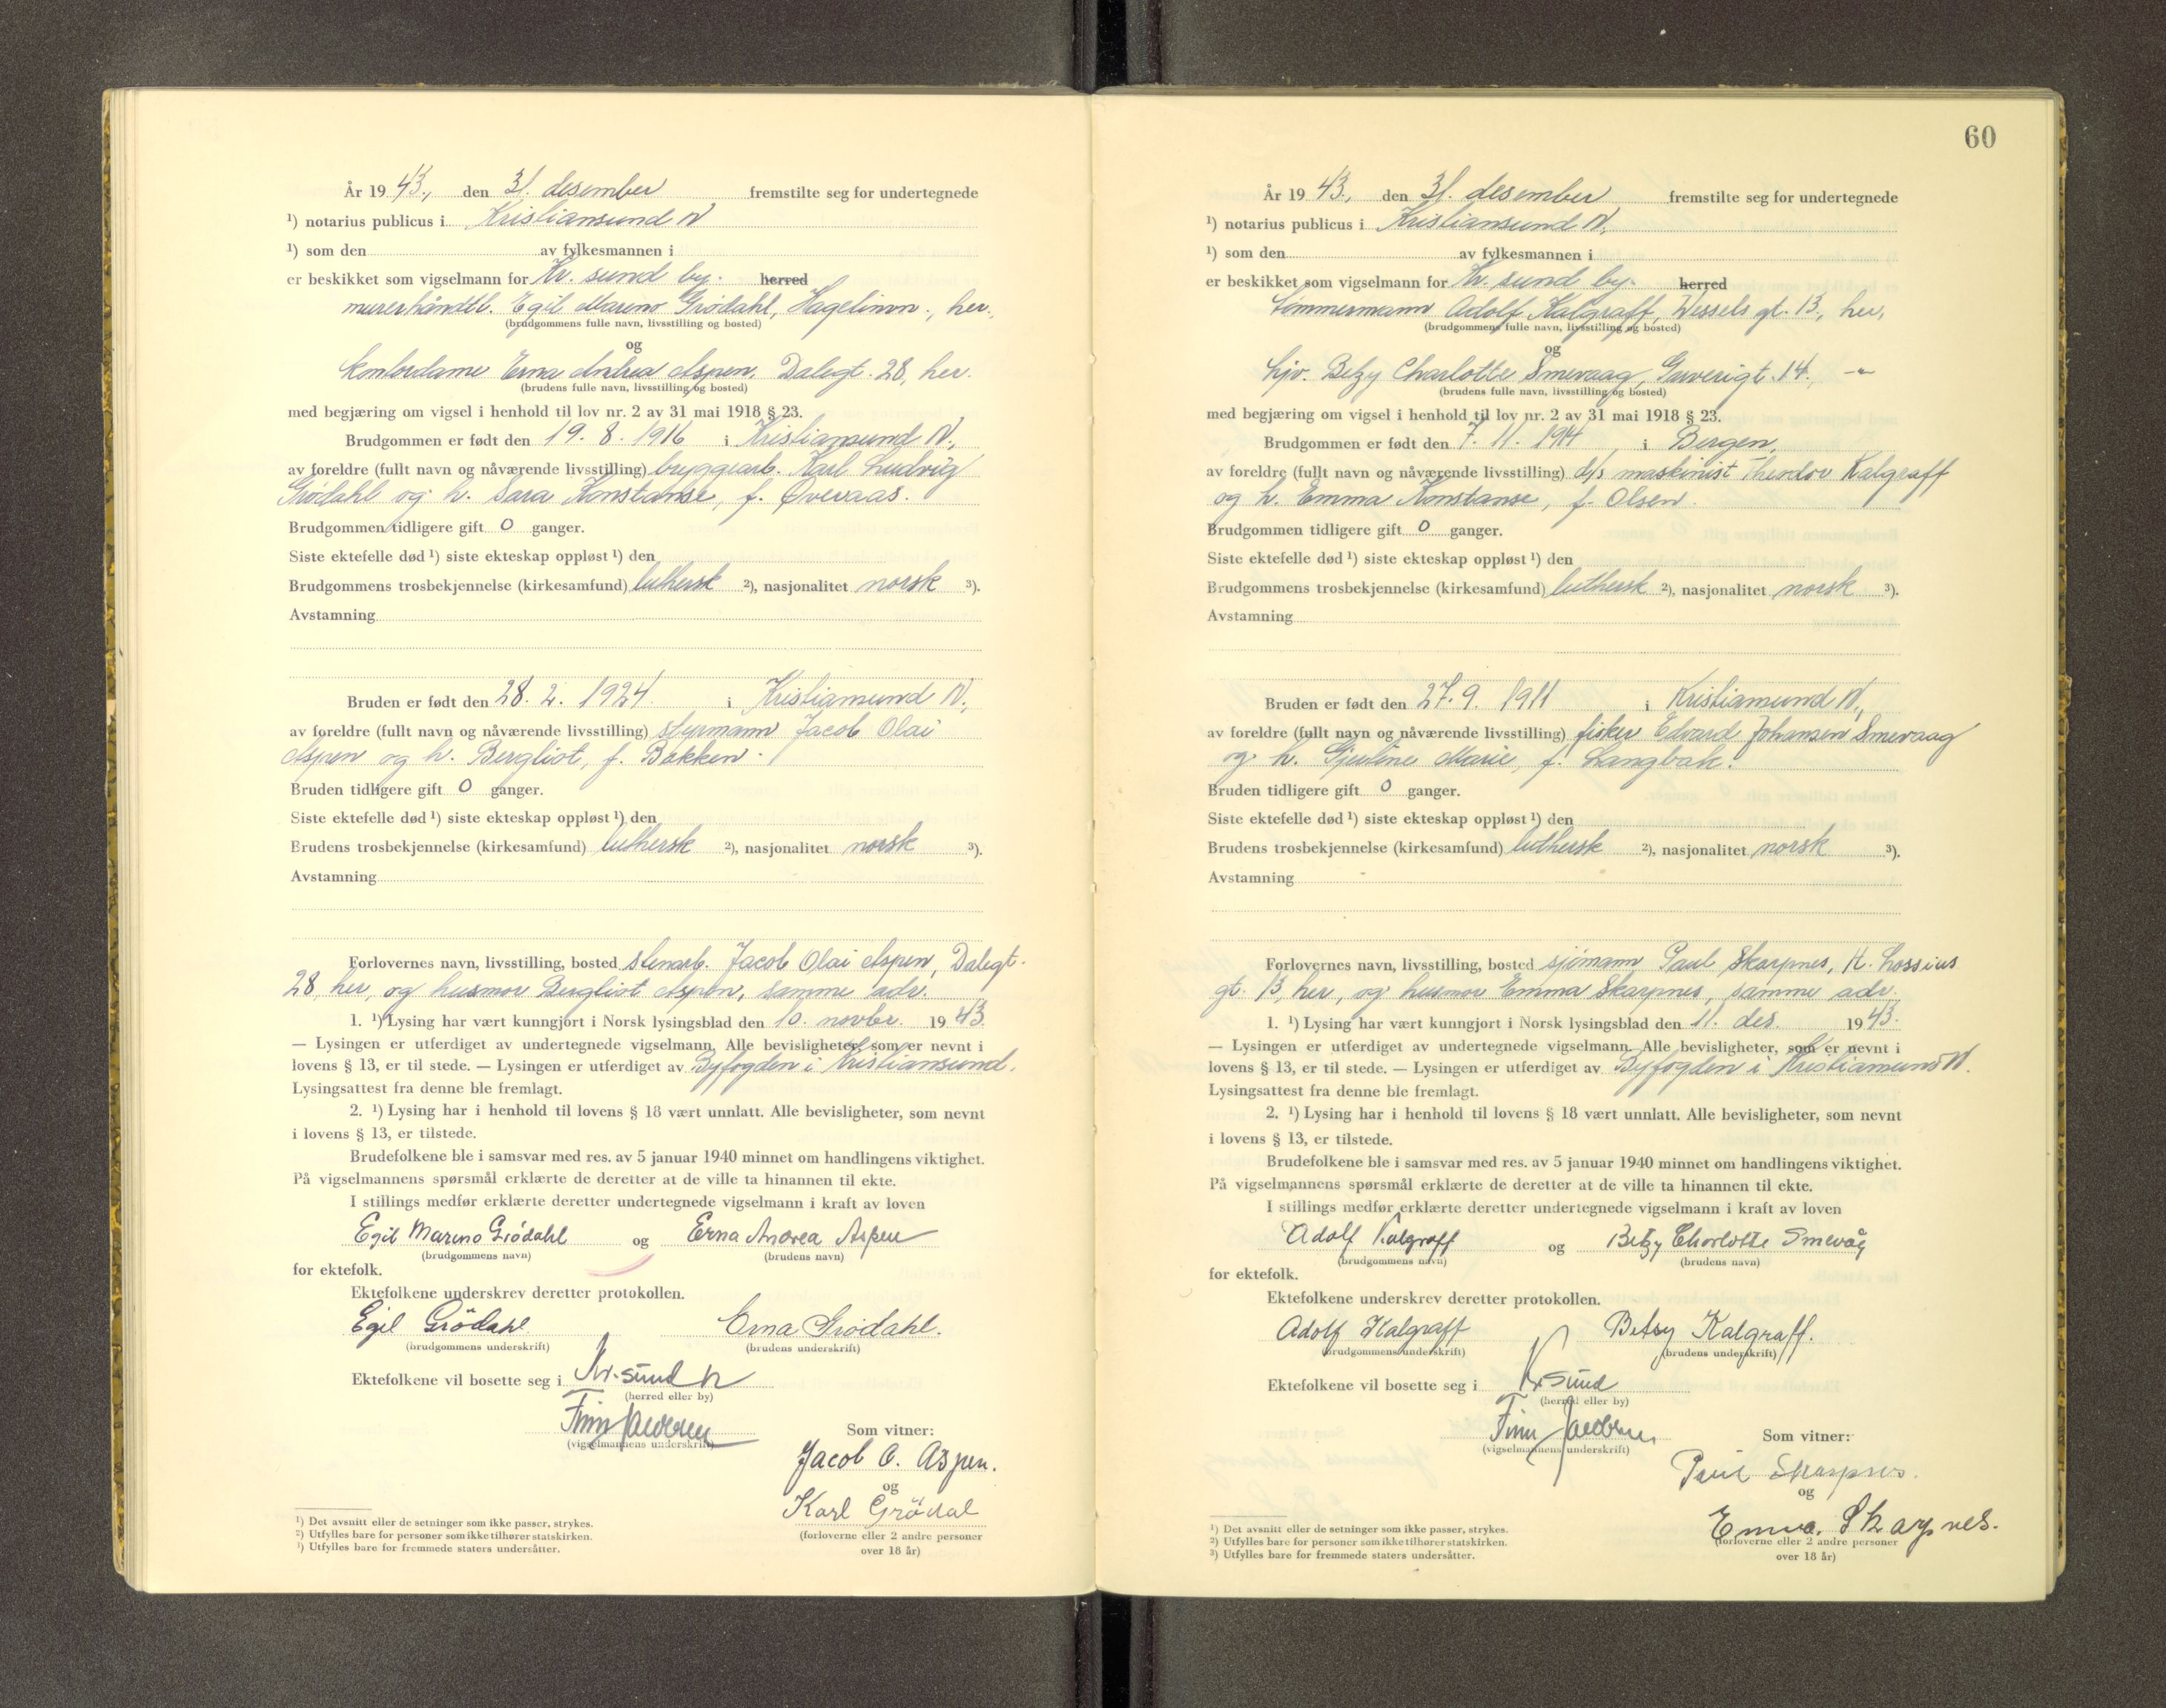 År 1943, den 31. desember fremstilte seg for undertegnede
¹) notarius publicus i Kristiansund N
¹) som den av fylkesmannen i
er beskikket som vigselmann for Kr. sund by. herred
murerhåndtl. Egil Mareno Grødahl, Hagelinn., her,
(brudgommens fulle navn, livsstilling og bosted)
og
kontordame Erna Andrea Aspen, Dalegt. 28, her.
(brudens fulle navn, livsstilling og bosted)
med begjæring om vigsel i henhold til lov nr. 2 av 31 mai 1918 § 23.
Brudgommen er født den 19. 8. 1916 i Kristiansund N.,
av foreldre (fullt navn og nåværende livsstilling) bryggearb. Karl Ludvig
Grødahl og h. Sara Konstanse, f. Øvevaas.
Brudgommen tidligere gift 0 ganger.
Siste ektefelle død ¹) siste ekteskap oppløst ¹) den
Brudgommens trosbekjennelse (kirkesamfund) luthersk ²), nasjonalitet norsk ³).
Avstamning
Bruden er født den 28. 2. 1924. i Kristiansund N.,
av foreldre (fullt navn og nåværende livsstilling) styrmann Jacob Olai
Aspen og h. Bergliot, f. Bakken.
Bruden tidligere gift 0 ganger.
Siste ektefelle død ¹) siste ekteskap oppløst ¹) den
Brudens trosbekjennelse (kirkesamfund) luthersk ²), nasjonalitet norsk ³).
Avstamning
Forlovernes navn, livsstilling, bosted stenarb. Jacob Olai Aspen, Dalegt.
28, her, og husmor Bergliot Aspen, samme adr.
1. ¹) Lysing har vært kunngjort i Norsk lysingsblad den 10. novbr. 1943.
— Lysingen er utferdiget av undertegnede vigselmann. Alle bevisligheter, som er nevnt i
lovens § 13, er til stede. — Lysingen er utferdiget av Byfogden i Kristiansund.
Lysingsattest fra denne ble fremlagt.
2. ¹) Lysing har i henhold til lovens § 18 vært unnlatt. Alle bevisligheter, som nevnt
i lovens § 13, er tilstede.
Brudefolkene ble i samsvar med res. av 5 januar 1940 minnet om handlingens viktighet.
På vigselmannens spørsmål erklærte de deretter at de ville ta hinannen til ekte.
I stillings medfør erklærte deretter undertegnede vigselmann i kraft av loven
Egil Mareno Grödahl og Erna Andrea Aspen
(brudgommens navn) (brudens navn)
for ektefolk.
Ektefolkene underskrev deretter protokollen.
Egil Grödahl Erna Grödahl.
(brudgommens underskrift) (brudens underskrift)
Ektefolkene vil bosette seg i Kr.sund N
(herred eller by)
Finn Jacobsen
(vigselmannens underskrift)
Som vitner:
Jacob O. Aspen.
og
Karl Grödal
(forloverne eller 2 andre personer
over 18 år)
¹) Det avsnitt eller de setninger som ikke passer, strykes.
²) Utfylles bare for personer som ikke tilhører statskirken.
³) Utfylles bare for fremmede staters undersåtter.
60
År 1943, den 31. desember fremstilte seg for undertegnede
¹) notarius publicus i Kristiansund N.
¹) som den av fylkesmannen i
er beskikket som vigselmann for Kr. sund by. herred
tømmermann Adolf Kalgraff, Wessels gt. 13, her,
(brudgommens fulle navn, livsstilling og bosted)
og
hjv. Betzy Charlotte Smevaag, Garverigt. 14, -"-
(brudens fulle navn, livsstilling og bosted)
med begjæring om vigsel i henhold til lov nr. 2 av 31 mai 1918 § 23.
Brudgommen er født den 7. 11. 1914 i Bergen,
av foreldre (fullt navn og nåværende livsstilling) d/s maskinist Theodor Kalgraff
og h. Emma Konstanse, f. Olsen.
Brudgommen tidligere gift 0 ganger.
Siste ektefelle død ¹) siste ekteskap oppløst ¹) den
Brudgommens trosbekjennelse (kirkesamfund) luthersk ²), nasjonalitet norsk ³).
Avstamning
Bruden er født den 27. 9. 1911 i Kristiansund N.,
av foreldre (fullt navn og nåværende livsstilling) fisker Edvard Johansen Smevaag
og h. Gjertine Marie, f. Langbak.
Bruden tidligere gift 0 ganger.
Siste ektefelle død ¹) siste ekteskap oppløst ¹) den
Brudens trosbekjennelse (kirkesamfund) luthersk ²), nasjonalitet norsk ³).
Avstamning
Forlovernes navn, livsstilling, bosted sjømann Paul Skarpnes, H. Lossius
gt. 13, her, og husmor Emma Skarpnes, samme adr.
1. ¹) Lysing har vært kunngjort i Norsk lysingsblad den 11. des. 1943.
— Lysingen er utferdiget av undertegnede vigselmann. Alle bevisligheter, som er nevnt i
lovens § 13, er til stede. — Lysingen er utferdiget av Byfogden i Kristiansund N.
Lysingsattest fra denne ble fremlagt.
2. ¹) Lysing har i henhold til lovens § 18 vært unnlatt. Alle bevisligheter, som nevnt
i lovens § 13, er tilstede.
Brudefolkene ble i samsvar med res. av 5 januar 1940 minnet om handlingens viktighet.
På vigselmannens spørsmål erklærte de deretter at de ville ta hinannen til ekte.
I stillings medfør erklærte deretter undertegnede vigselmann i kraft av loven
Adolf Kalgraff og Betzy Charlotte Smevåg
(brudgommens navn) (brudens navn)
for ektefolk.
Ektefolkene underskrev deretter protokollen.
Adolf Kalgraff Betsy Kalgraff.
(brudgommens underskrift) (brudens underskrift)
Ektefolkene vil bosette seg i Kr sund
(herred eller by)
Finn Jacobsen
(vigselmannens underskrift)
Som vitner:
Paul Skarpnes.
og
Emma Skarpnes.
(forloverne eller 2 andre personer
over 18 år)
¹) Det avsnitt eller de setninger som ikke passer, strykes.
²) Utfylles bare for personer som ikke tilhører statskirken.
³) Utfylles bare for fremmede staters undersåtter.